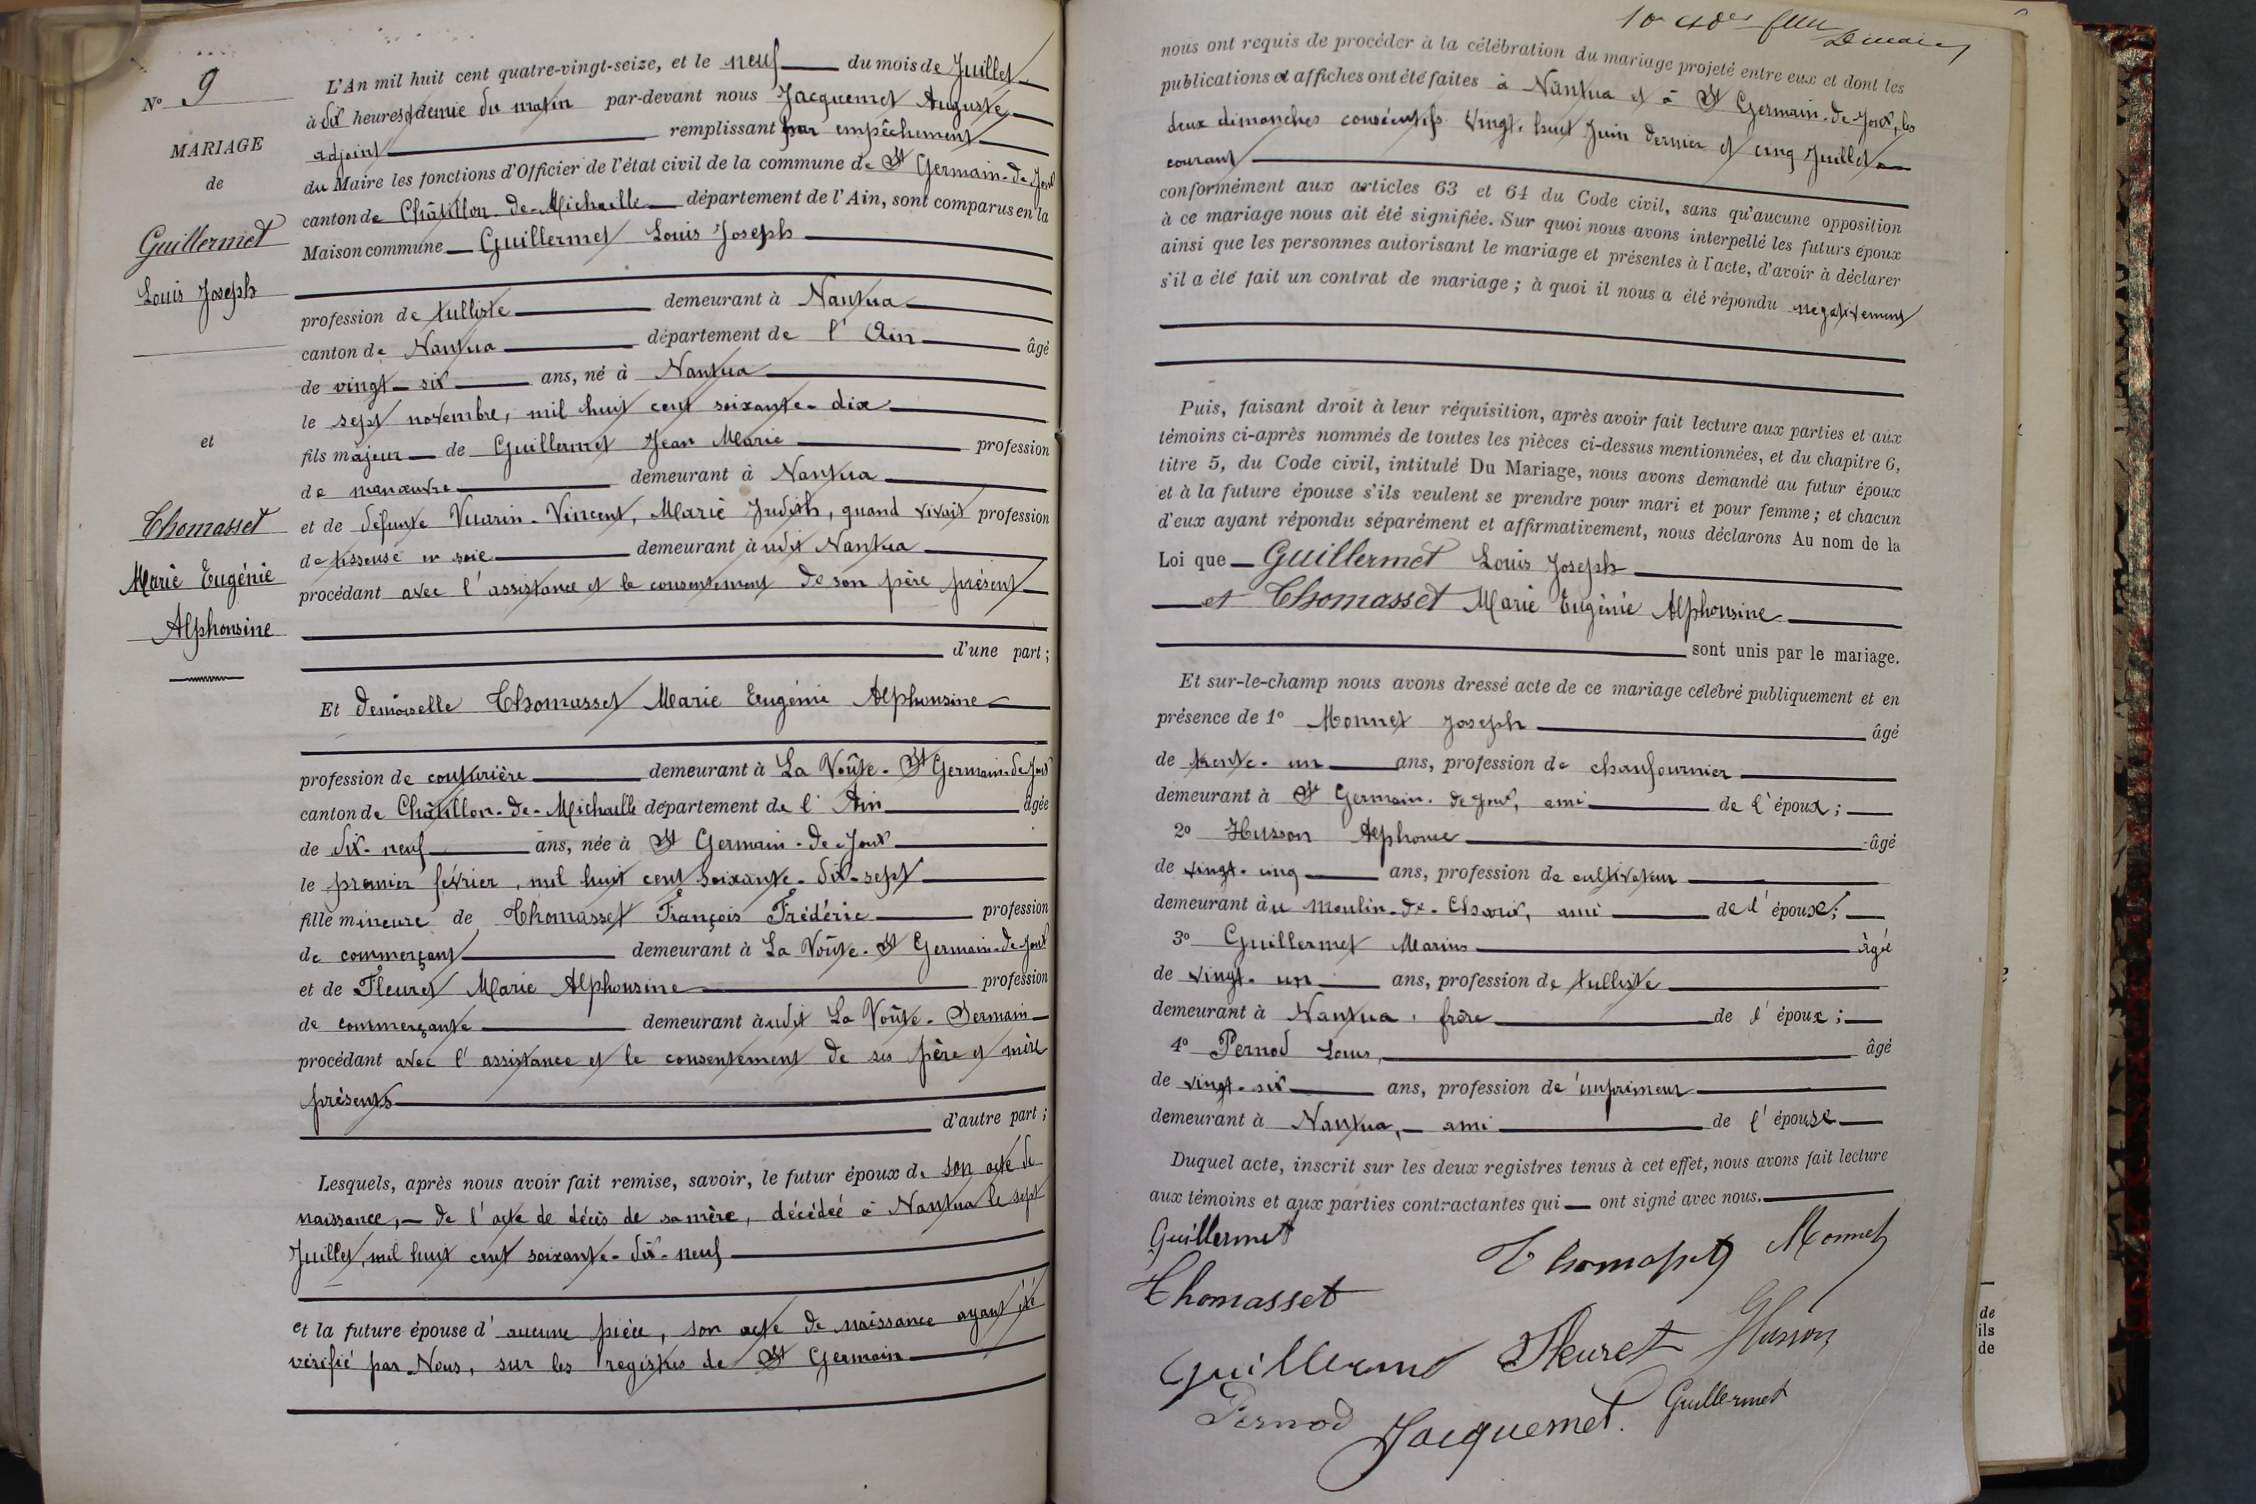 N° 9
MARIAGE
de
Guillermet
Louis Joseph
et
Thomasset
Marie Eugénie
Alphonsine
L'An mil huit cent quatre-vingt-seize, et le neuf du mois de Juillet
à dix heures & demie du matin par-devant nous Jacquemet Auguste
adjoint remplissant par empêchement
du Maire les fonctions d'Officier de l'état civil de la commune de St Germain-de-Joux
canton de Châtillon-de-Michaille département de l'Ain, sont comparus en la
Maison commune Guillermet Louis Joseph
profession de tulliste demeurant à Nantua
canton de Nantua département de l'Ain âgé
de vingt-six ans, né à Nantua
le sept novembre, mil huit cent soixante-dix
fils majeur de Guillermet Jean Marie profession
de manœuvre demeurant à Nantua
et de défunte Vuarin-Vincent, Marie Judith, quand vivait profession
de tisseuse en soie demeurant àudit Nantua
procédant avec l'assistance et le consentement de son père présent
d'une part ;
Et demoiselle Thomasset Marie Eugénie Alphonsine
profession de couturière demeurant à La Voûte-St Germain-de-Joux
canton de Châtillon-de-Michaille département de l'Ain âgée
de dix-neuf ans, née à St Germain-de-Joux
le premier février, mil huit cent soixante-dix-sept
fille mineure de Thomasset François Frédéric profession
de commerçant demeurant à La Voûte-St Germain-de-Joux
et de Fleuret Marie Alphonsine profession
de commerçante demeurant àudit La Voûte-Germain
procédant avec l'assistance et le consentement de ses père et mère
présents
d'autre part ;
Lesquels, après nous avoir fait remise, savoir, le futur époux de son acte de
naissance, - de l'acte de décès de sa mère, décédée à Nantua le sept
Juillet, mil huit cent soixante-dix-neuf
et la future épouse d'aucune pièce, son acte de naissance ayant été
vérifié par Nous, sur les registres de St Germain
nous ont requis de procéder à la célébration du mariage projeté entre eux et dont les
publications et affiches ont été faites à Nantua et à St Germain-de-Joux, les
deux dimanches consécutifs vingt-huit Juin dernier et cinq Juillet
courant
conformément aux articles 63 et 64 du Code civil, sans qu'aucune opposition
à ce mariage nous ait été signifiée. Sur quoi nous avons interpellé les futurs époux
ainsi que les personnes autorisant le mariage et présentes à l'acte, d'avoir à déclarer
s'il a été fait un contrat de mariage ; à quoi il nous a été répondu négativement
Puis, faisant droit à leur réquisition, après avoir fait lecture aux parties et aux
témoins ci-après nommés de toutes les pièces ci-dessus mentionnées, et du chapitre 6,
titre 5, du Code civil, intitulé Du Mariage, nous avons demandé au futur époux
et à la future épouse s'ils veulent se prendre pour mari et pour femme ; et chacun
d'eux ayant répondu séparément et affirmativement, nous déclarons Au nom de la
Loi que Guillermet Louis Joseph
et Thomasset Marie Eugénie Alphonsine
sont unis par le mariage.
Et sur-le-champ nous avons dressé acte de ce mariage célébré publiquement et en
présence de 1° Monnet Joseph âgé
de trente-un ans, profession de chaufournier
demeurant à St Germain-de-Joux, ami de l'époux ;
2° Husson Alphonse âgé
de vingt-cinq ans, profession de cultivateur
demeurant àu Moulin-de-Charix, ami de l'épouse ;
3° Guillermet Marius âgé
de vingt-un ans, profession de tulliste
demeurant à Nantua, frère de l'époux ;
4° Pernod Louis, âgé
de vingt-six ans, profession de imprimeur
demeurant à Nantua, - ami de l'épouse
Duquel acte, inscrit sur les deux registres tenus à cet effet, nous avons fait lecture
aux témoins et aux parties contractantes qui ont signé avec nous.
Guillermet
Thomasset Monnet
Thomasset
Guillermet Fleuret Husson
Pernod Jacquemet. Guillermet
de
ils
de